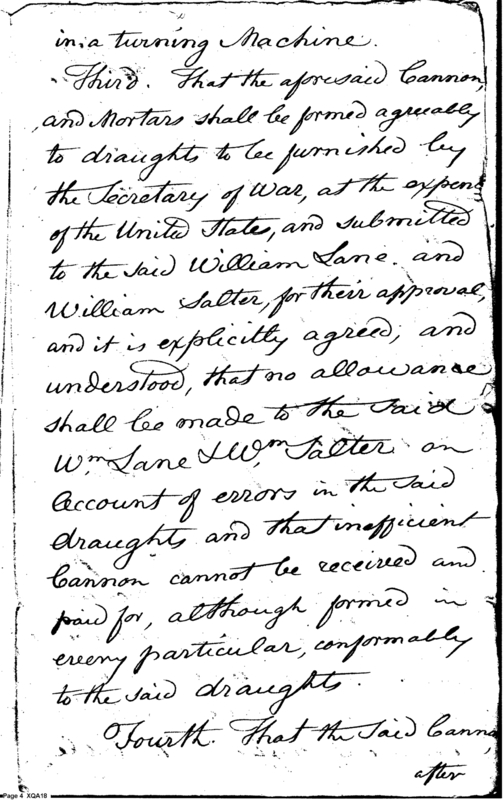 in a turning Machine.
Third. That the aforesaid Cannon,
and Mortars shall be formed agreeably
to draughts to be furnished by
the Secretary of War, at the expen
of the United States, and submitted
to the said William Lane. and
William Salter, for their approval,
and it is explicitly agreed, and
understood, that no allowance
shall be made to the said
Wm Lane & Wm Salter on
Account of errors in the said
draughts and that inefficient
Cannon cannot be received and
paid for, although formed in
every particular, conformably
to the said draughts.
Fourth. That the said Canno
after
Page 4 XQA18